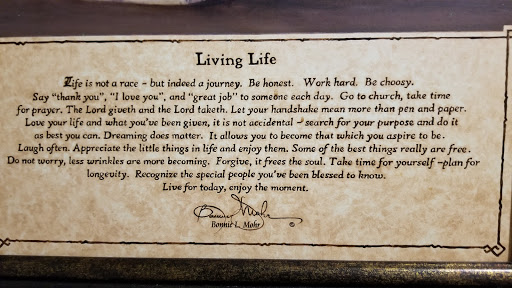 Living Life
Life is not a race - but indeed a journey. Be honest. Work hard. Be choosy.
Say "thank you", "I love you", and "great job" to someone each day. Go to church, take time
for prayer. The Lord giveth and the Lord taketh. Let your handshake mean more than pen and paper.
Love your life and what you've been given, it is not accidental - search for your purpose and do it
as best you can. Dreaming does matter. It allows you to become that which you aspire to be.
Laugh often. Appreciate the little things in life and enjoy them. Some of the best things really are free.
Do not worry, less wrinkles are more becoming. Forgive, it frees the soul. Take time for yourself - plan for
longevity. Recognize the special people you've been blessed to know.
Live for today, enjoy the moment.
Bonnie Mohr
Bonnie L. Mohr ©